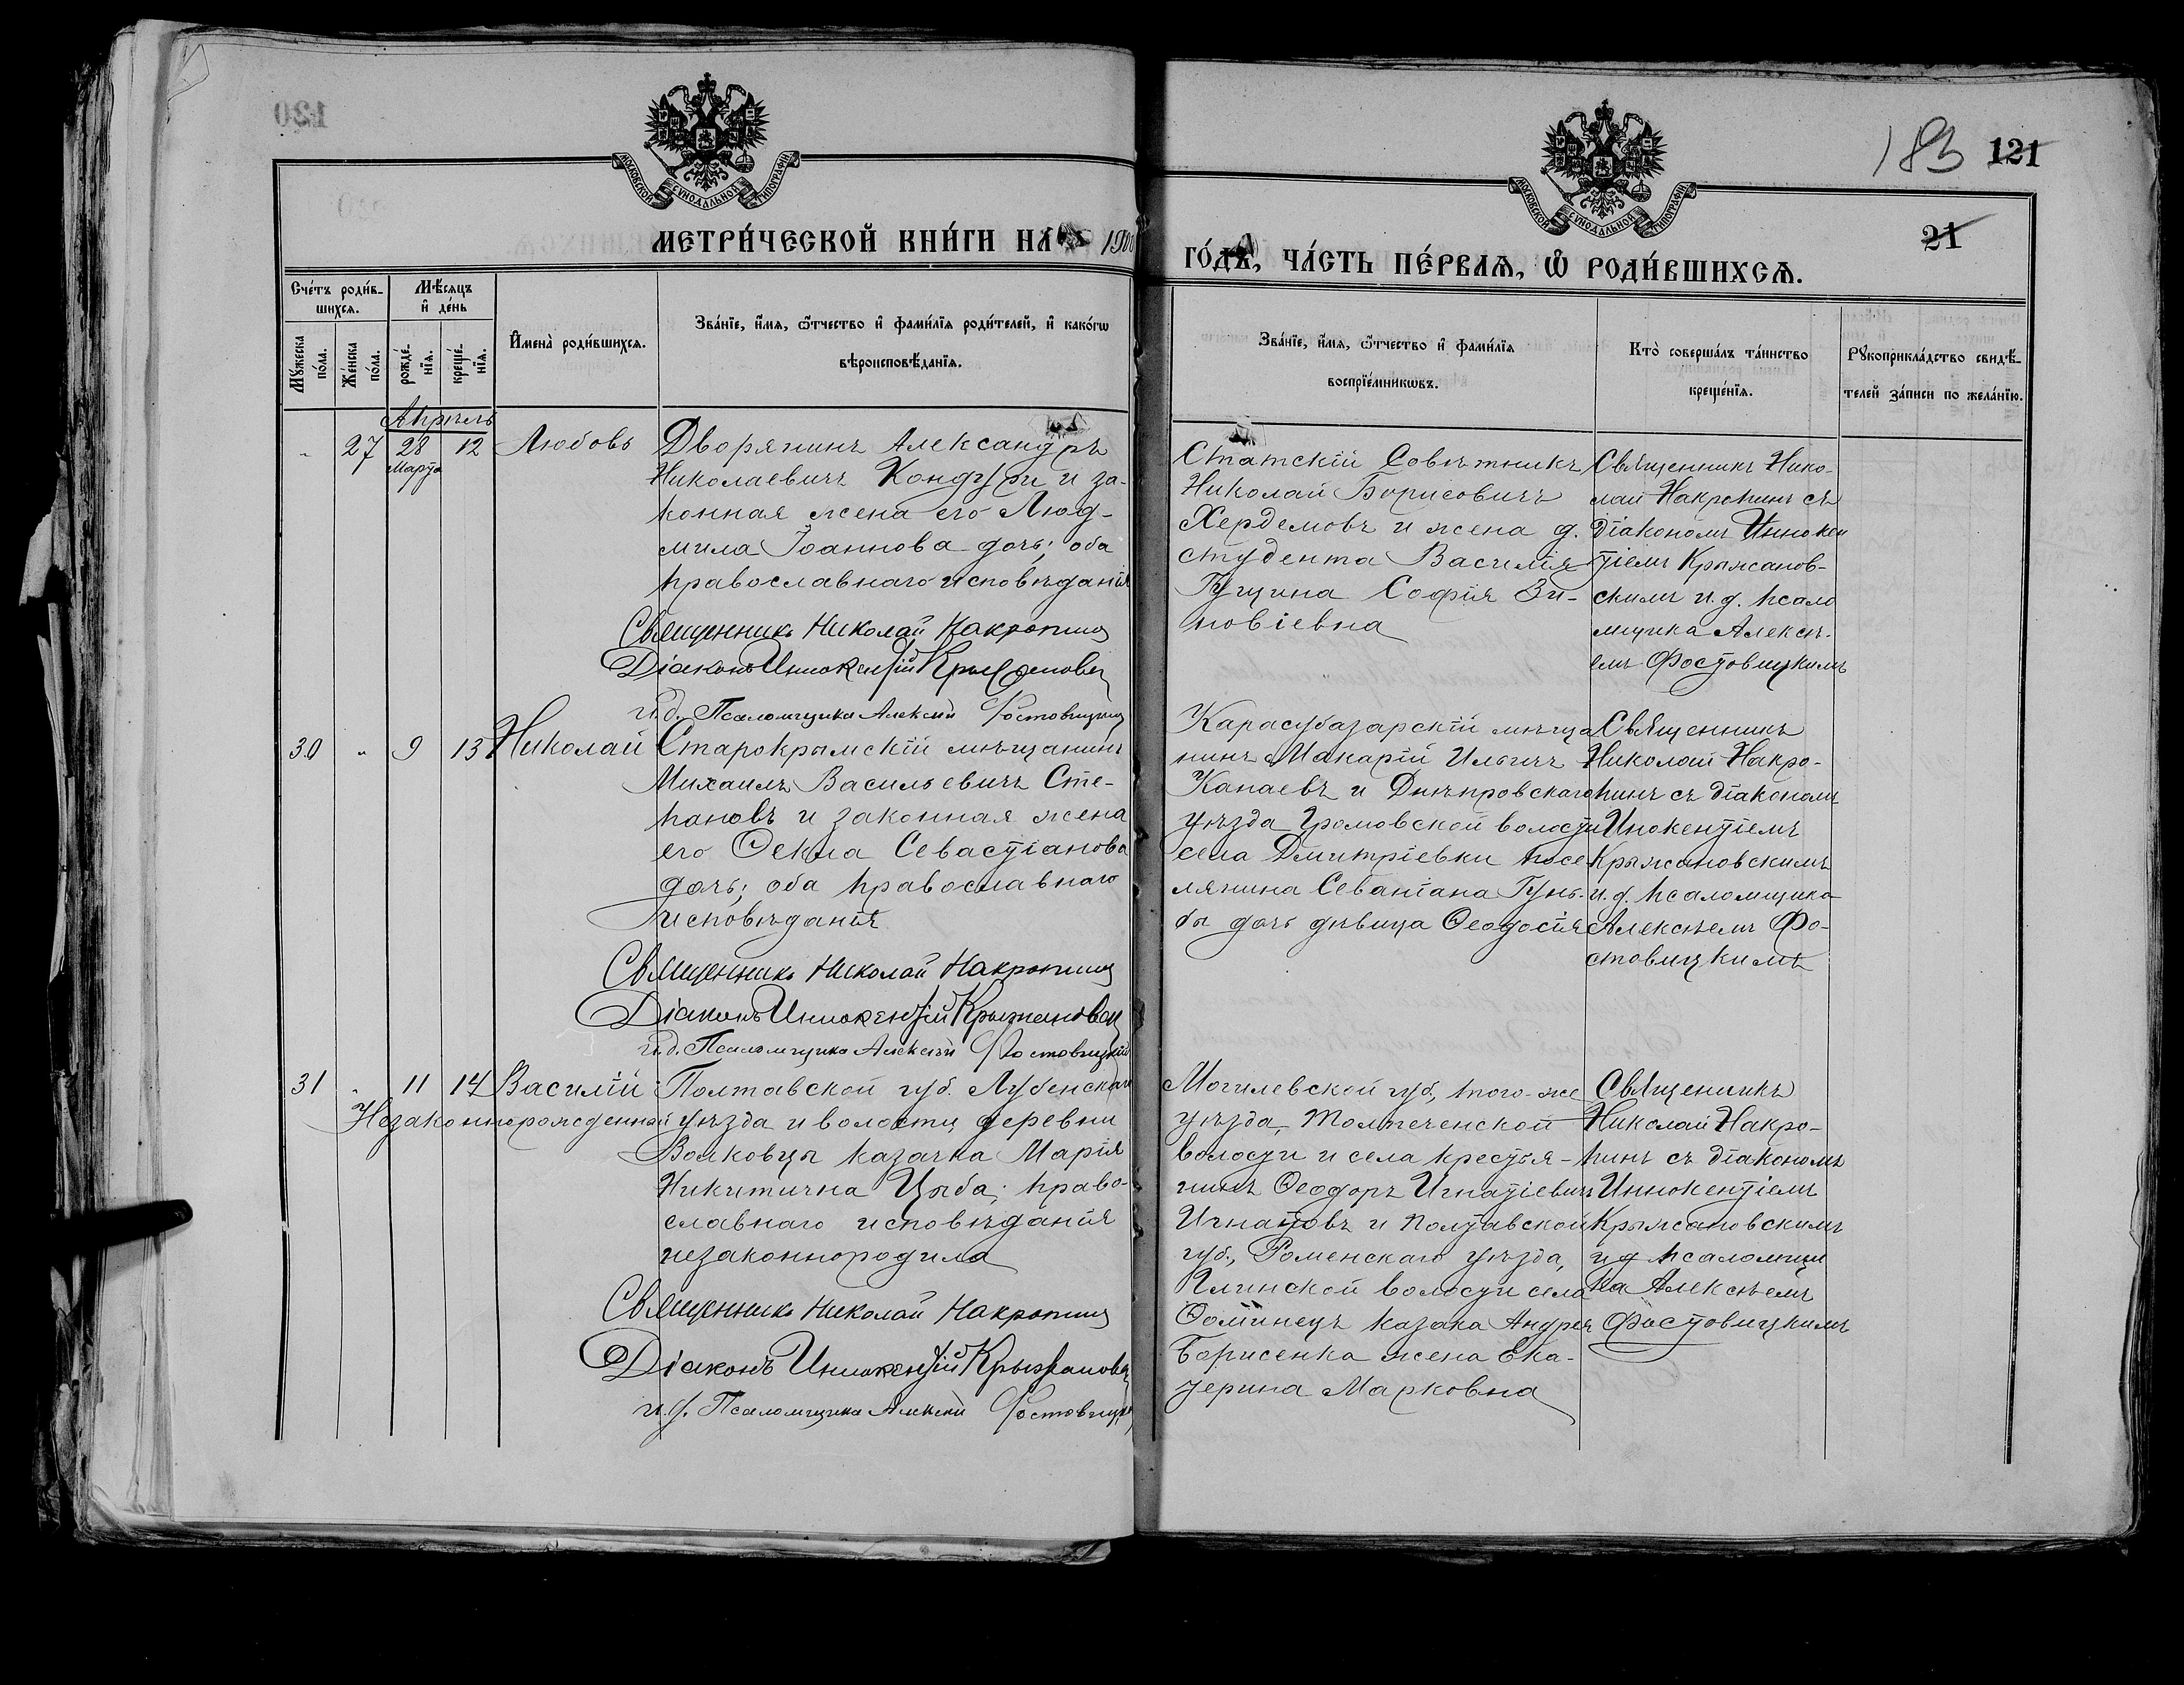 183 121
21
МОСКОВСКОЙ СѴНОДАЛЬНОЙ ТИПОГРАФІИ
МОСКОВСКОЙ СѴНОДАЛЬНОЙ ТИПОГРАФІИ
МЕТРИ́ЧЕСКОЙ КНИ́ГИ НА 1900
ГО́ДЪ, ЧА́СТЬ ПЕ́РВАѦ, Ѡ҆ РОДИ́ВШИХСѦ.
Сче́тъ роди́в-
шихсѧ.
Мꙋ́жеска по́ла.
Же́нска по́ла.
Мѣ́сѧцъ
и҆ де́нь
рожде́-
нїѧ.
креще́-
нїѧ.
И҆мена̀ роди́вшихсѧ.
Зва́нїе, и҆́мѧ, ѻ҆́тчество и҆ фами́лїѧ роди́телей, и҆ како́гѡ
вѣроисповѣ́данїѧ.
Зва́нїе, и҆́мѧ, ѻ҆́тчество и҆ фами́лїѧ
воспрїе́мникѡвъ.
Кто̀ соверша́лъ та́инство
креще́нїѧ.
Рꙋкоприкла́дство свидѣ́-
телей за́писи по жела́нїю.
Апрѣль
„ 27 28 12 Любовь
Марта
Дворянинъ Александръ
Николаевичъ Кондури и за-
конная жена его Люд-
мила Іоаннова дочь; оба
православнаго исповѣданія
Священникъ Николай Накропинъ
Діаконъ Иннокентій Крыжановск
и. д. Псаломщика Алексѣй Фостовицкій
Статскій Совѣтникъ
Николай Борисовичъ
Хердемовъ и жена д.
студента Василія
Гущина Софія Зи-
новіевна
Священникъ Нико-
лай Накропинъ съ
діакономъ Иннокен
тіемъ Крыжанов-
скимъ и. д. псало
мщика Алексѣ-
емъ Фостовицкимъ
30 „ 9 13 Николай
Старокрымскій мѣщанинъ
Михаилъ Васильевичъ Сте-
пановъ и законная жена
его Ѳекла Севастіанова
дочь; оба православнаго
исповѣданія
Священникъ Николай Накропинъ
Діаконъ Иннокентій Крыжановск
и. д. Псаломщика Алексѣй Фостовицкій
Карасубазарскій мѣща
нинъ Макарій Ильичъ
Канаевъ и Днѣпровскаго
уѣзда Громовской волости
села Дмитріевки посе
лянина Севаніана Гунь-
бы дочь дѣвица Ѳеодосія
Священникъ
Николай Накро-
пинъ съ діакономъ
Инокентіемъ
Крыжановскимъ
и. д. псаломщика
Алексѣемъ Фо-
стовицкимъ
31 „ 11 14 Василій
Незаконнорожденный
Полтавской губ. Лубенскаго
уѣзда и волости деревни
Волковцы казачка Марія
Никитична Цыба; право-
славнаго исповѣданія
незаконнородила
Священникъ Николай Накропинъ
Діаконъ Иннокентій Крыжановск
и. д. Псаломщика Алексѣй Фостовицкій
Могилевской губ, того-же
уѣзда, Толпеченской
волости и села крестья-
нинъ Ѳеодоръ Игнатіевичъ
Игнатовъ и Полтавской
губ., Роменскаго уѣзда,
Глинской волости села
Ѳоминецъ казака Андрея
Борисенка жена Ека-
терина Марковна
Священникъ
Николай Накро-
пинъ съ діакономъ
Иннокентіемъ
Крыжановскимъ
и д псаломщи
ка Алексѣемъ
Фостовицкимъ